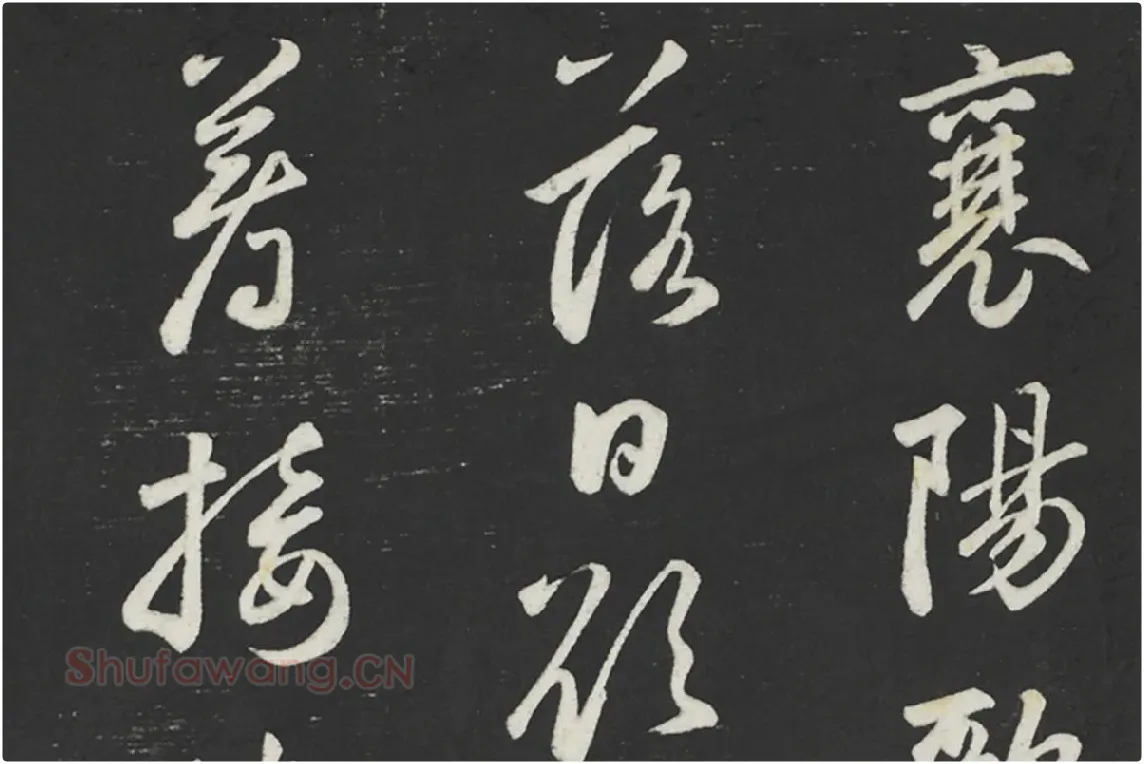 襄陽
落日欲
着接
Shufawang.CN